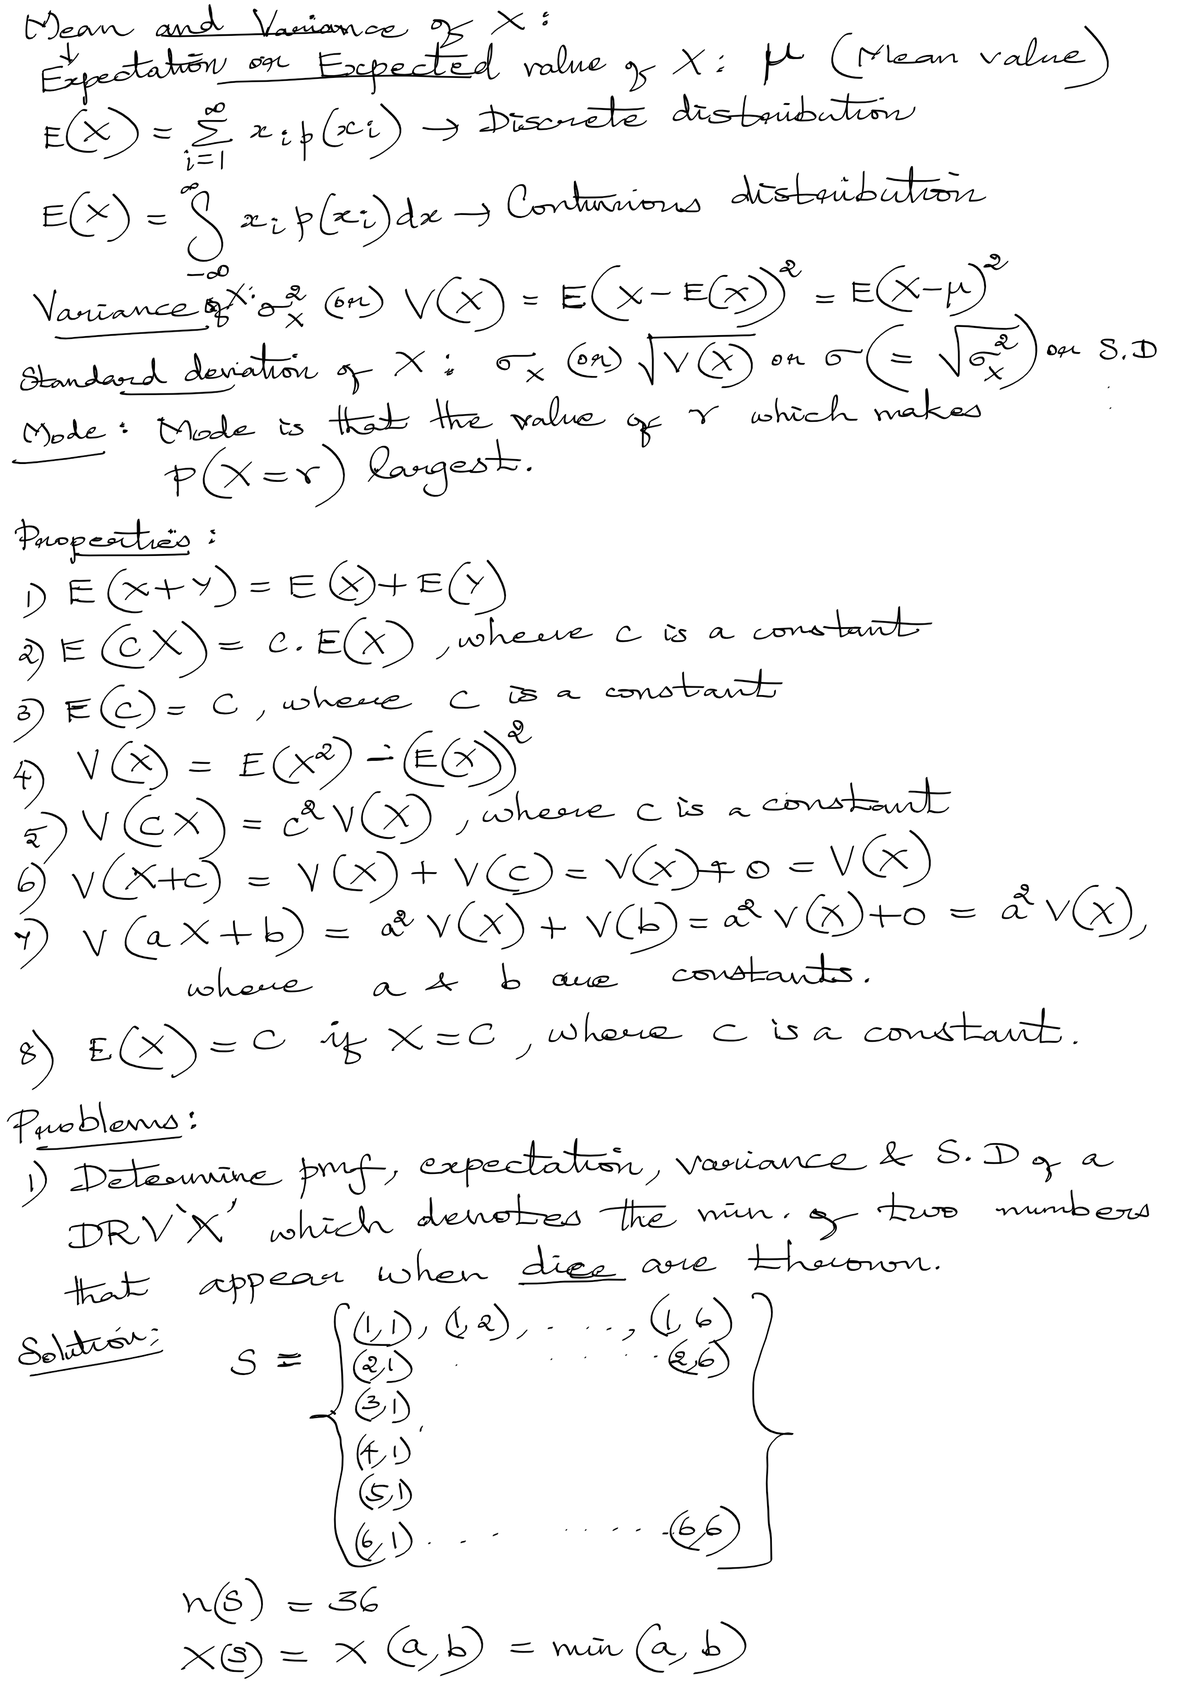 Mean and Variance of X :
↓
Expectation or Expected value of X : μ (Mean value)
E(X) = ∑_{i=1}^{∞} x_i p(x_i) → Discrete distribution
E(X) = ∫_{-∞}^{∞} x_i p(x_i) dx → Continuous distribution
Variance of X: σ_X^2 (or) V(X) = E(X-E(X))^2 = E(X-μ)^2
Standard deviation of X : σ_X (or) √V(X) or σ (= √σ_X^2) or S.D
Mode : Mode is that the value of r which makes
P(X=r) largest.
Properties :
1) E(X+Y) = E(X)+E(Y)
2) E(CX) = C.E(X), where c is a constant
3) E(C) = C, where c is a constant
4) V(X) = E(X^2) - (E(X))^2
5) V(CX) = c^2 V(X), where c is a constant
6) V(X+c) = V(X) + V(C) = V(X)+0 = V(X)
7) V(aX+b) = a^2 V(X) + V(b) = a^2 V(X)+0 = a^2 V(X),
where a & b are constants.
8) E(X) = C if X=C, where c is a constant.
Problems :
1) Determine pmf, expectation, variance & S.D of a
DRV 'X' which denotes the min. of two numbers
that appear when dice are thrown.
Solution:
S = { (1,1), (1,2), . . . ., (1,6)
(2,1) . . . . . (2,6)
(3,1)
(4,1)
(5,1)
(6,1) . . . . . . . (6,6) }
n(S) = 36
X(S) = X(a,b) = min(a,b)